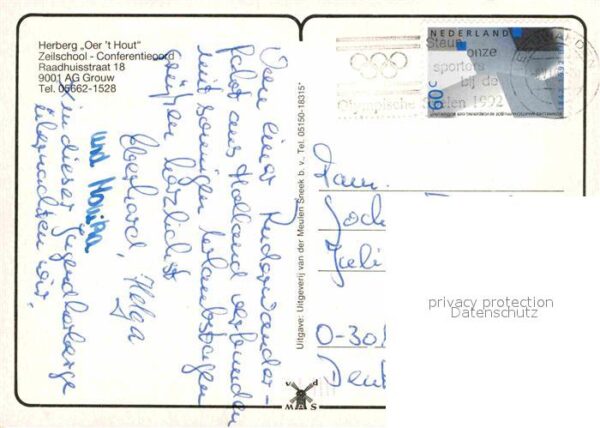 Herberg „Oer 't Hout"
Zeilschool - Conferentieoord
Raadhuisstraat 18
9001 AG Grouw
Tel. 05662-1528
Von einer Ruderwander-
fahrt aus Holland verbunden
mit sonnigen Urlaubstagen
grüßen herzlichst
Eberhard, Helga
und Monika
In dieser Jugendherberge
übernachten wir.
Uitgave: Uitgeverij van der Meulen Sneek b. v., Tel. 05150-18315*
NEDERLAND
60c
Steun
onze
sporters
bij de
Olympische Spelen 1992
Fam.
Joch
Juli
D-30
Deut
privacy protection
Datenschutz
v d
MAS